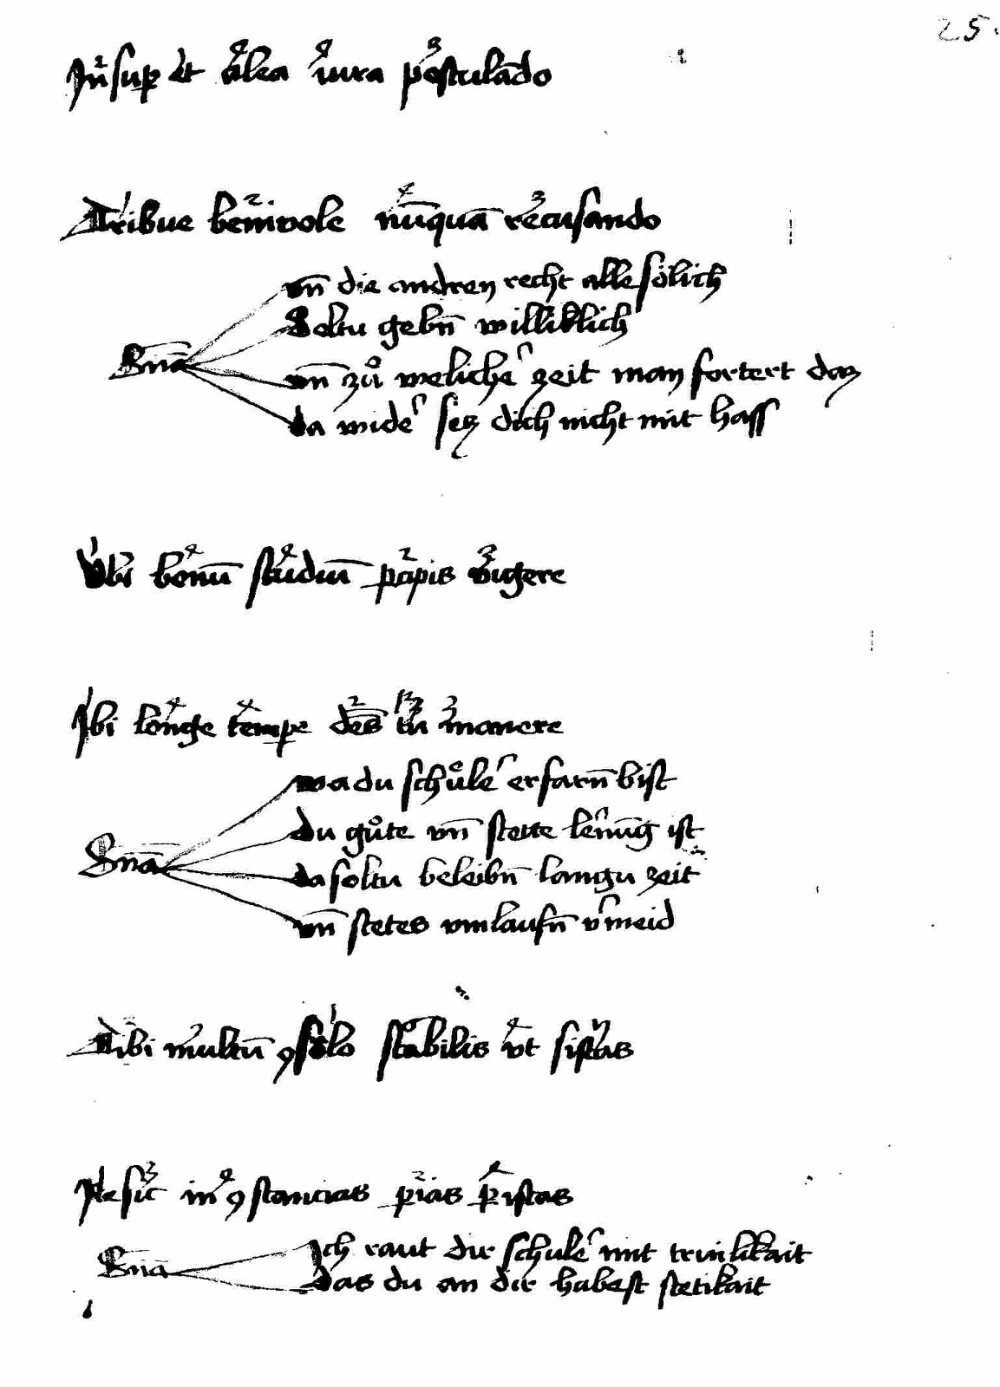 25.
Insup et alia iura postulādo
Tribue beniuole nūquā recusando
vn̄ die andren recht alle sölich
Soltu gebn̄ williklich
Sn̄ia
vn̄ zů weliche zeit man fortert daz
da wide secz dich nicht mit hass
Vbi bonū studiū pcipis vigere
Ibi longe tempe des tu manere
wa du schůle erfarn̄ bist
du gůte vn̄ stette lernūg ist
Sn̄ia
da soltu beleibn̄ langu zeit
vn̄ stetes vmlaufn̄ vmeid
Tibi multū ꝯsulo stabilis vt sistas
Ne sic inꝯstancias prias pistas
Ich raut dir schule mit treulikait
Sn̄ia
Das du an dir habest stetikait